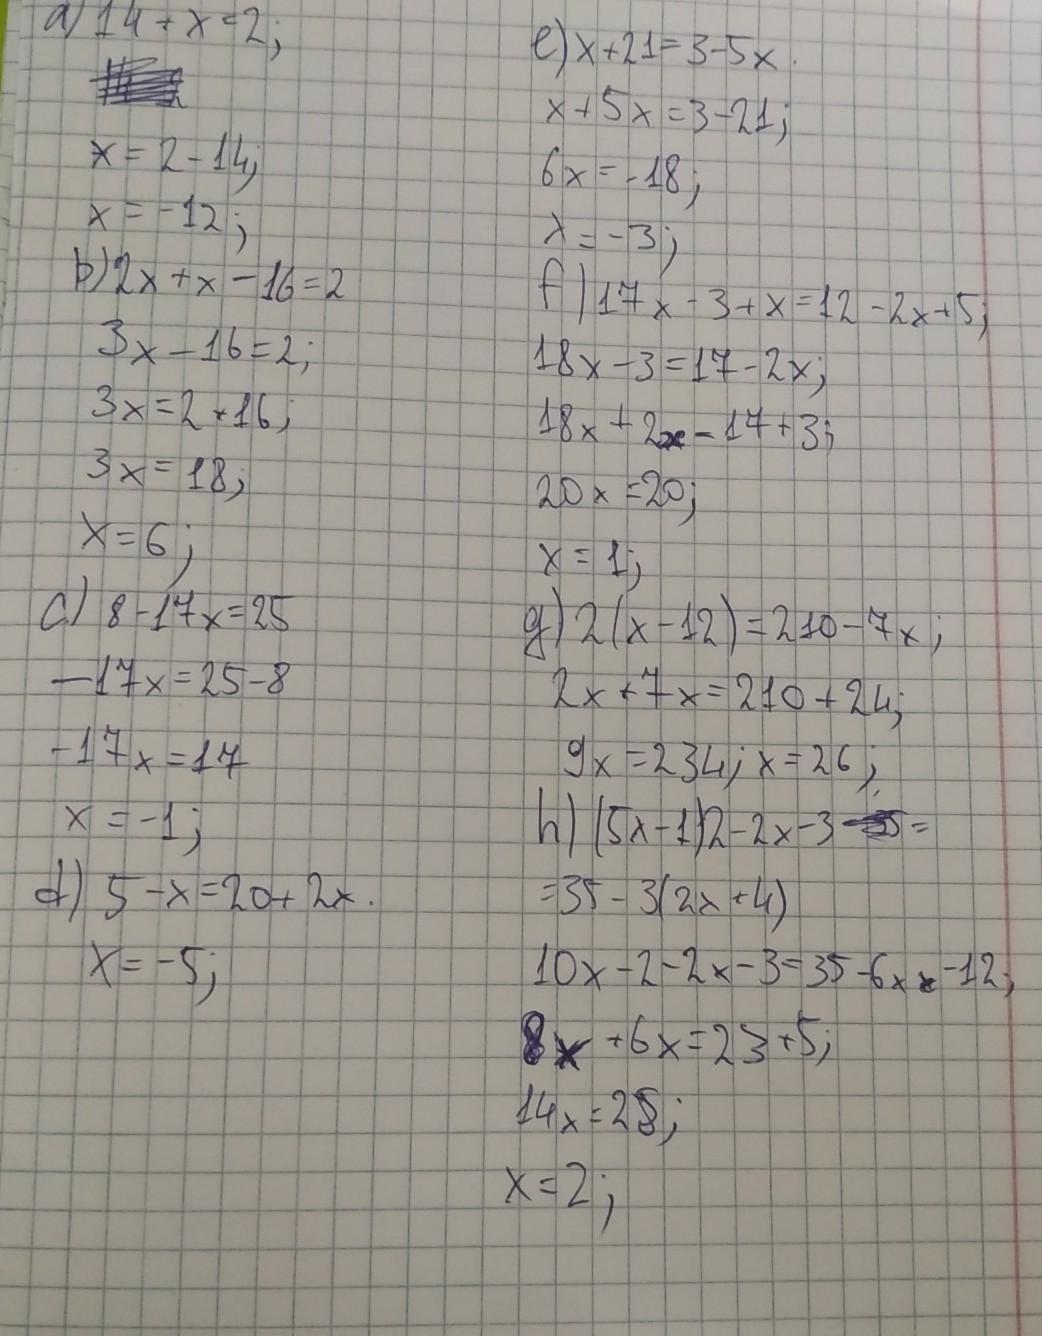 a) 14 + x = 2;
x = 2 - 14;
x = -12;
b) 2x + x - 16 = 2
3x - 16 = 2;
3x = 2 + 16;
3x = 18;
x = 6;
c) 8 - 17x = 25
-17x = 25 - 8
-17x = 17
x = -1;
d) 5 - x = 20 + 2x.
x = -5;
e) x + 21 = 3 - 5x.
x + 5x = 3 - 21;
6x = -18;
x = -3;
f) 17x - 3 + x = 12 - 2x + 5;
18x - 3 = 17 - 2x;
18x + 2x = 17 + 3;
20x = 20;
x = 1;
g) 2(x - 12) = 210 - 7x;
2x + 7x = 210 + 24;
9x = 234; x = 26;
h) (5x - 1)2 - 2x - 3 =
= 35 - 3(2x + 4)
10x - 2 - 2x - 3 = 35 - 6x - 12;
8x + 6x = 23 + 5;
14x = 28;
x = 2;